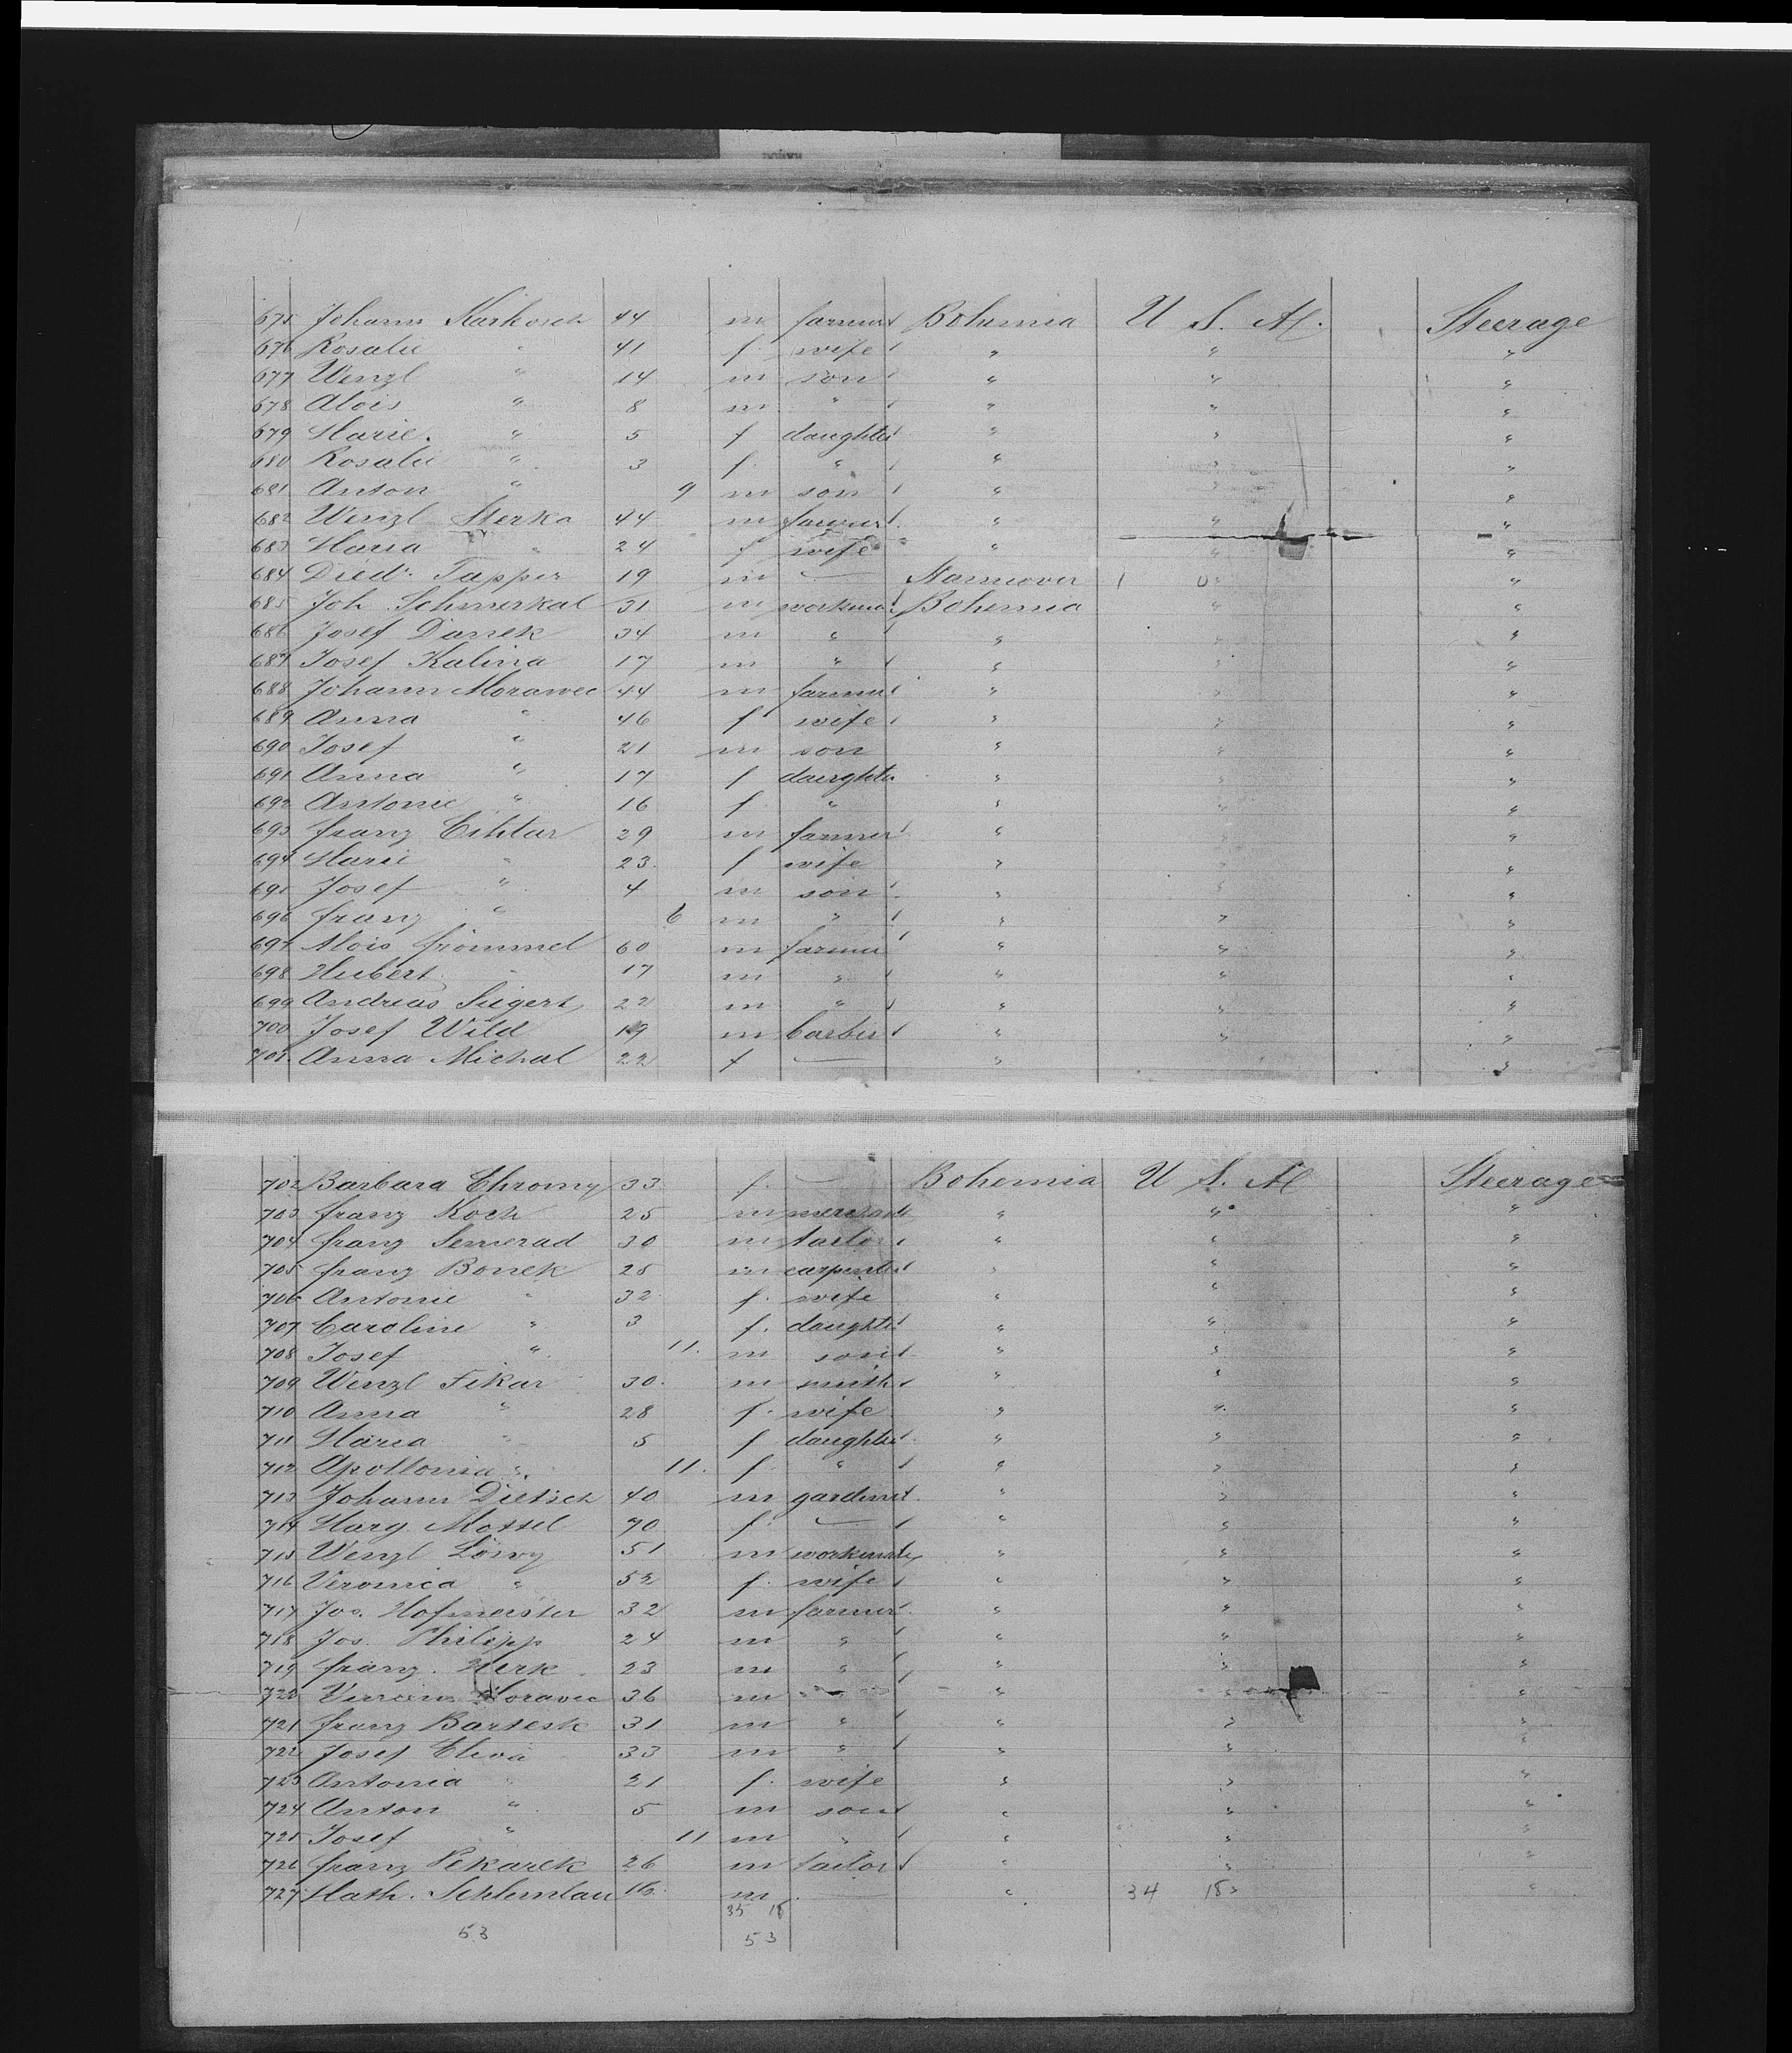 675 Johann Karkosch 44 m farmer Bohemia U. S. A. Steerage
676 Rosalie " 41 f. wife " " "
677 Wenzl " 14 m son " " "
678 Alois " 8 m " " " "
679 Marie. " 5 f daughter " " "
680 Rosalie " 3 f. " " " "
681 Anton " 9 m son " " "
682 Wenzl Sterka 44 m farmer " " "
683 Maria " 24 f wife " " "
684 Died. Tapper 19 m — Hannover 1 0 " "
685 Joh. Schmerkal 31 m workman Bohemia " "
686 Josef Danek 34 m " " " "
687 Josef Kalina 17 m " " " "
688 Johann Morawec 44 m farmer " " "
689 Anna " 46 f wife " " "
690 Josef " 21 m son " " "
691 Anna " 17 f daughter " " "
692 Antonie " 16 f. " " " "
693 Franz Cihlar 29 m farmer " " "
694 Marie " 23. f wife " " "
695 Josef " 4 m son " " "
696 Franz " 6 m " " " "
697 Alois Frömmel 60 m farmer " " "
698 Hubert " 17 m " " " "
699 Andreas Siegert 22 m " " " "
700 Josef Wild 19 m barber " " "
701. Anna Michal 22 f — " " "
702 Barbara Chromy 33 f. — Bohemia U. S. A Steerage
703 Franz Koch 25 m " " "
704 Franz Semerad 30 m tailor " " "
705 Franz Bonek 25 m carpenter " " "
706 Antonie " 32 f. wife " " "
707 Caroline " 3 f. daughter " " "
708 Josef " 11. m son " " "
709 Wenzl Fikar 30. m smith " " "
710 Anna " 28 f. wife " " "
711 Maria " 5 f daughter " " "
712 Apollonia " 11. f " " " "
713 Johann Dietsch 40 m gardener " " "
714 Marg. Mottel 70 f. — " " "
715 Wenzl Löwy 51 m workman " " "
716 Veronica " 52 f. wife " " "
717 Jos. Hofmeister 32 m farmer " " "
718 Jos. Philipp 24 m " " " "
719 Franz. Herk 23 m " " " "
720 Moravec 36 m " " " "
721 Franz 31 m " " " "
722 Josef Cliva 33 m " " " "
723 Antonia " 21 f. wife " " "
724 Anton " 5 m son " " "
725 Josef " 11 m " " " "
726 Franz Pekarek 26 m tailor " " "
727 Math. 16 m — " 34 18 " "
35 18
53 53